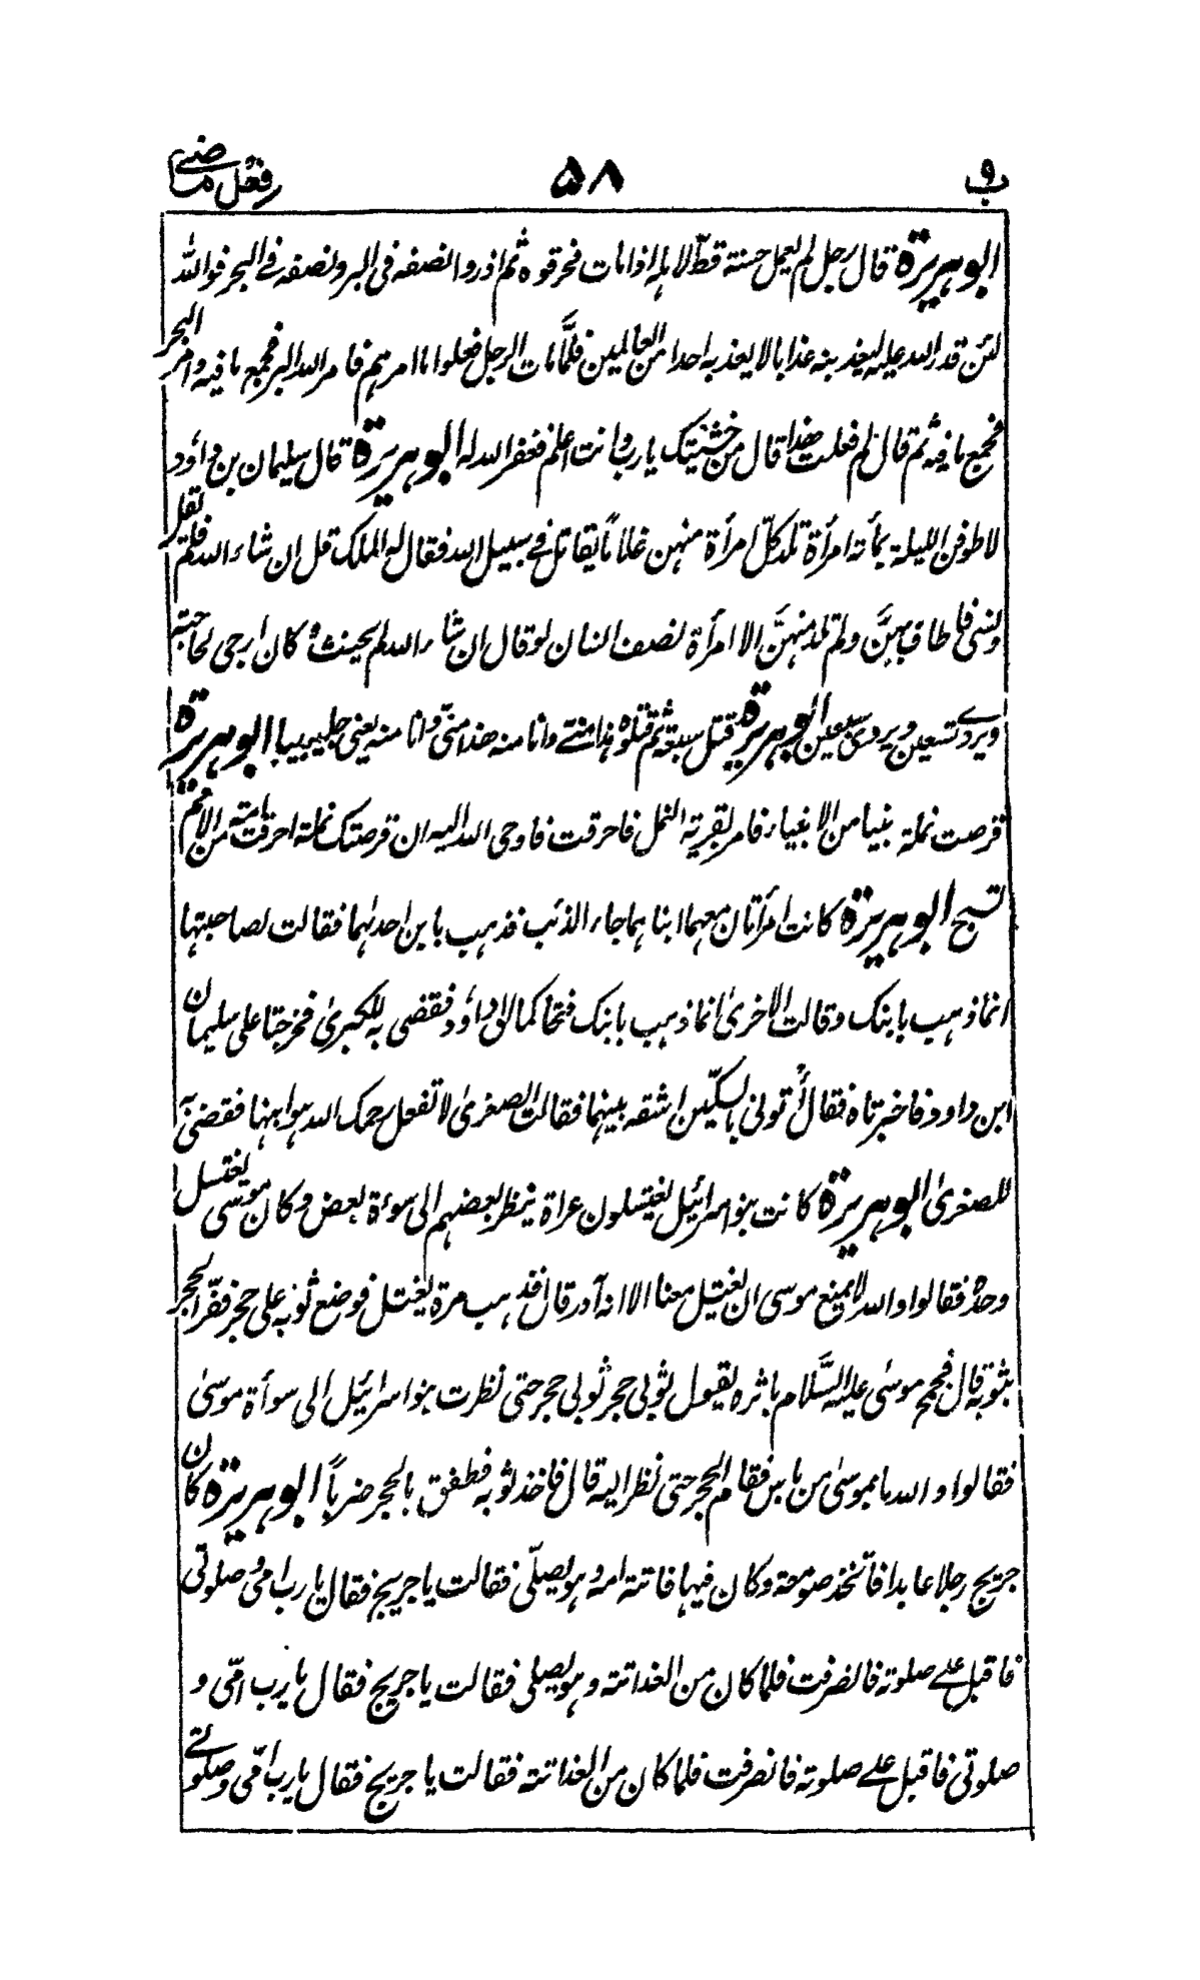 ب ٩ ۵۸ فعل ماضي
ابو هريرة قال رجل لم يعمل حسنة قطّ لاهله اذا مات فحرقوه ثم اذروا نصفه فى البر ونصفه فے البحر فوالله
لئن قدر الله عليه ليعذبنه عذابا لا يعذبه احدا من العالمين فلمَّا مات الرجل فعلوا ما امرهم فامر الله البر فجمع ما فيه وامر البحر
فجمع ما فيه ثم قال لم فعلت هذا قال من خشيتك يا رب وانت اعلم فغفر الله له ابو هريرة قال سليمان بن داؤد
لاطوفن الليلة بمأته امرأة تلد كلّ امرأة منهن غلاماً يقاتل فے سبيل الله فقال له الملك قل ان شاء الله فلم يقل
ونسى فاطاف بهنَّ ولم تلد منهنَّ الا امرأة نصف انسان لو قال ان شاء الله لم يحنث و كان ارجى لحاجته
ويروے تسعين ويروى سبعين ابو هريرة قتل سبعة ثم قتلوه هذا منے وانا منه هذا منّى وانا منه يعنى جليبيبا ابو هريرة
قرصت نملة نبيا من الانبياء فامر بقرية النمل فاحرقت فاوحى الله اليه ان قرصتك نملة احرقت امة من الامم
تسبح ابو هريرة كانت امرأتان معهما ابناهما جاء الذئب فذهب بابن احدٰىهما فقالت لصاحبتها
انما ذهب بابنك وقالت الاخرىٰ انما ذهب بابنك فتحاكما الى داؤد فقضى به للكبرىٰ فخرجتا على سليمان
ابن داود فاخبرتاه فقال ائتونى بالسكّين اشقه بينهما فقالت الصغرىٰ لا تفعل رحمك الله هو ابنها فقضى به
للصغرىٰ ابو هريرة كانت بنوا سرائيل يغتسلون عراة ينظر بعضهم الى سوءة بعض وكان موسى يغتسل
وحده فقالوا والله لا يمنع موسى ان يغتسل معنا الا انه آدر قال فذهب مرة يغتسل فوضع ثوبه على حجر ففرّ الحجر
بثوبه قال فجمح موسٰى عليه السَّلام باثره يقول ثوبى حجر ثوبى حجر حتى نظرت بنوا سرائيل الى سوأة موسىٰ
فقالوا والله ما بموسىٰ من باس فقام الحجر حتى نظر اليه قال فاخذ ثوبه فطفق بالحجر ضرباً ابو هريرة كان
جريج رجلا عابدا فاتّخذ صومعة وكان فيها فاتته امه وهو يصلّى فقالت يا جريج فقال يا رب امى و صلوتى
فاقبل علے صلوته فانصرفت فلما كان من الغد اتته وهو يصلى فقالت يا جريج فقال يا رب امّى و
صلوتى فاقبل علے صلوته فانصرفت فلما كان من الغد اتته فقالت يا جريج فقال يا رب امّى وصلوتے